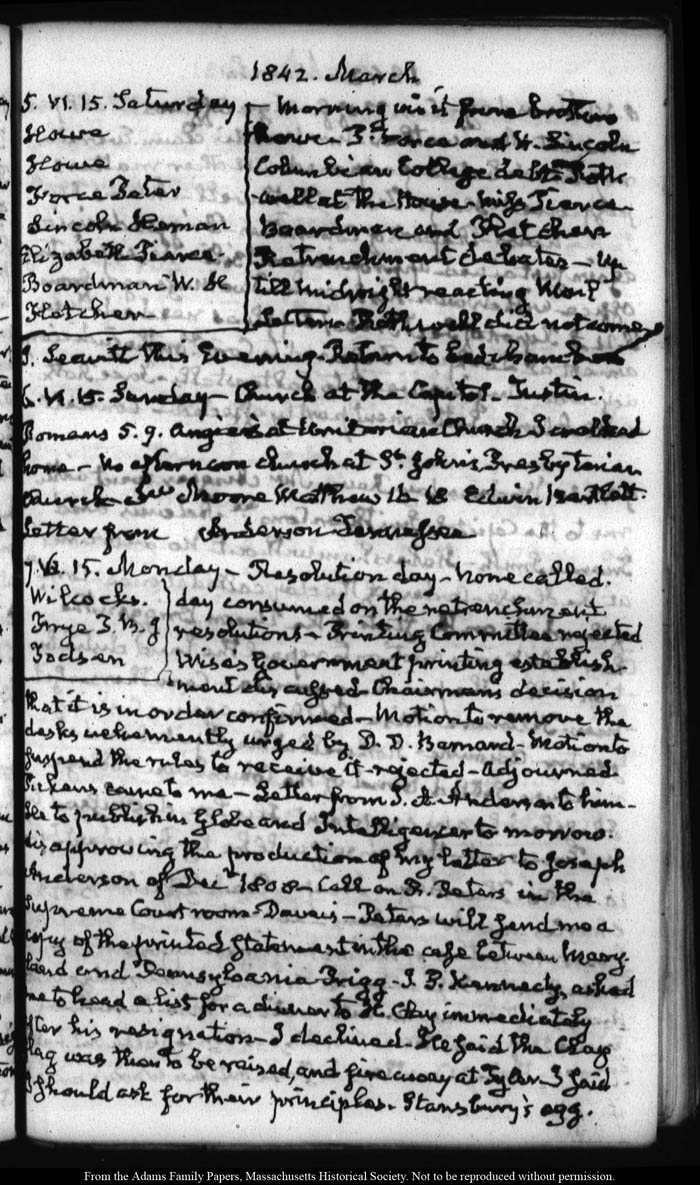 1842. March
5. VI. 15. Saturday
Howe
Howe
Force Peter
Lincoln Heman
Elizabeth Pierce
Boardman W. H
Fletcher
Morning visit from brothers
Howe - P. Force and H. Lincoln
Columbian College debt Roth
well at the House - Miss Pierce
Boardman and Fletcher
Retrenchment debates - up
till midnight reading Mail
Letters. Rothwell did not come
J. Leavitt this Evening. Return to
6. VI. 15. Sunday - Church at the Capitol - Tustin.
Romans 5. 9. Angier at Unitarian Church I walked
home - No afternoon church at St. John's Presbyterian
church Moore Mathew Edwin Bartlett.
Letter from Anderson Tennessee
7. VI. 15. Monday - Resolution day - None called.
Wilcocks.
Frye
day consumed on the retrenchment
resolutions - Printing Committee rejected
Wise's Government printing establish-
ment discussed - Chairman's decision
that it is in order confirmed - Motion to remove the
desks vehemently urged by D. D. Barnard - Motion to
suspend the rules to receive it - rejected - adjourned
Pickens came to me - Letter from J. A. Anderson to him -
He to publish in Globe and Intelligencer to morrow.
disapproving the production of my letter to Joseph
Anderson of Decr. 1808 - Call on R. Peters in the
Supreme Court room - Daveis - Peters will send me a
copy of the printed statement in the case between Mary-
land and Pennsylvania Prigg - J. P. Kennedy, asked
me to head a list for a dinner to H. Clay immediately
after his resignation - I declined. He said the Clay
flag was then to be raised, and fire away at Tyler. I said
I should ask for their principles. Stansbury's egg.
From the Adams Family Papers, Massachusetts Historical Society. Not to be reproduced without permission.